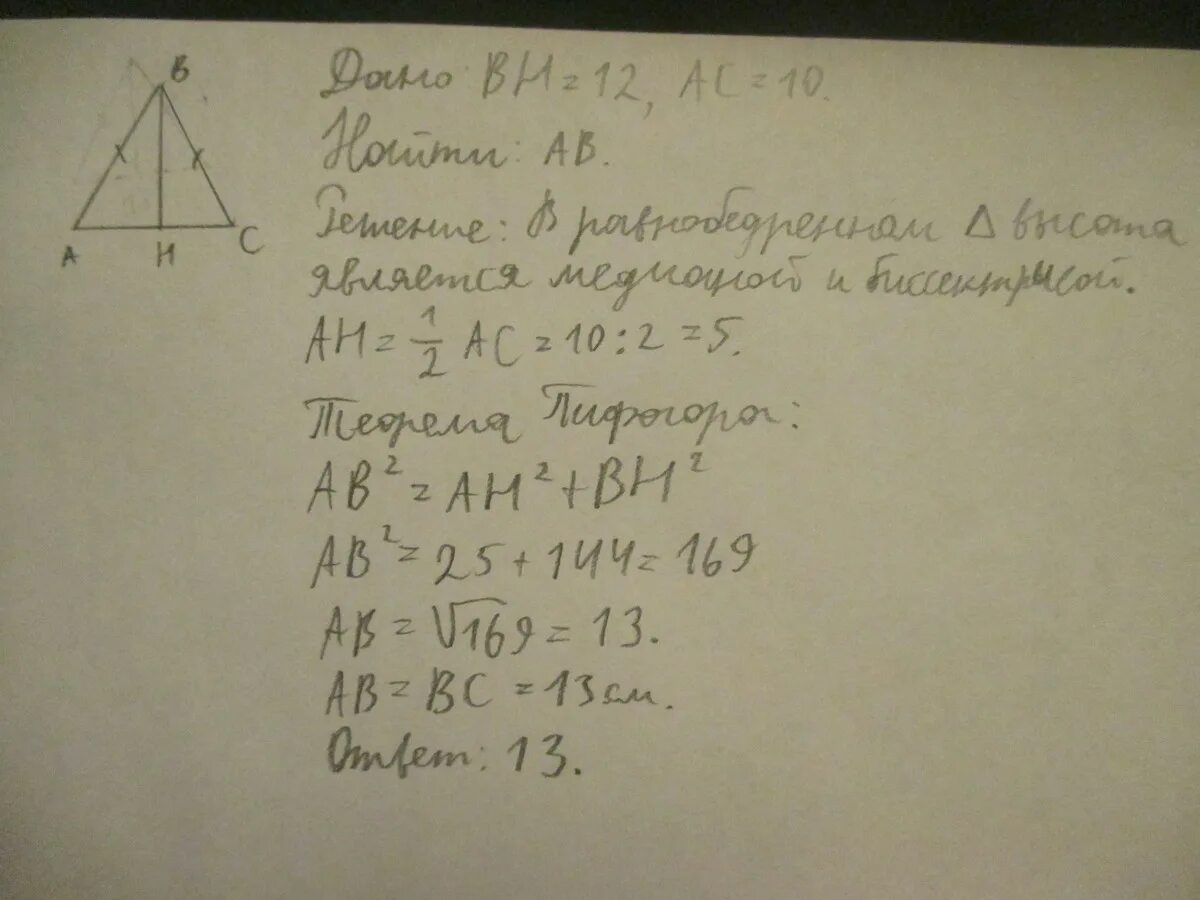 B
A H C
Дано BH = 12, AC = 10.
Найти: AB.
Решение: В равнобедренном Δ высота
является медианой и биссектрисой.
AH = 1/2 AC = 10 : 2 = 5.
Теорема Пифагора:
AB² = AH² + BH²
AB² = 25 + 144 = 169
AB = √169 = 13.
AB = BC = 13 см.
Ответ: 13.